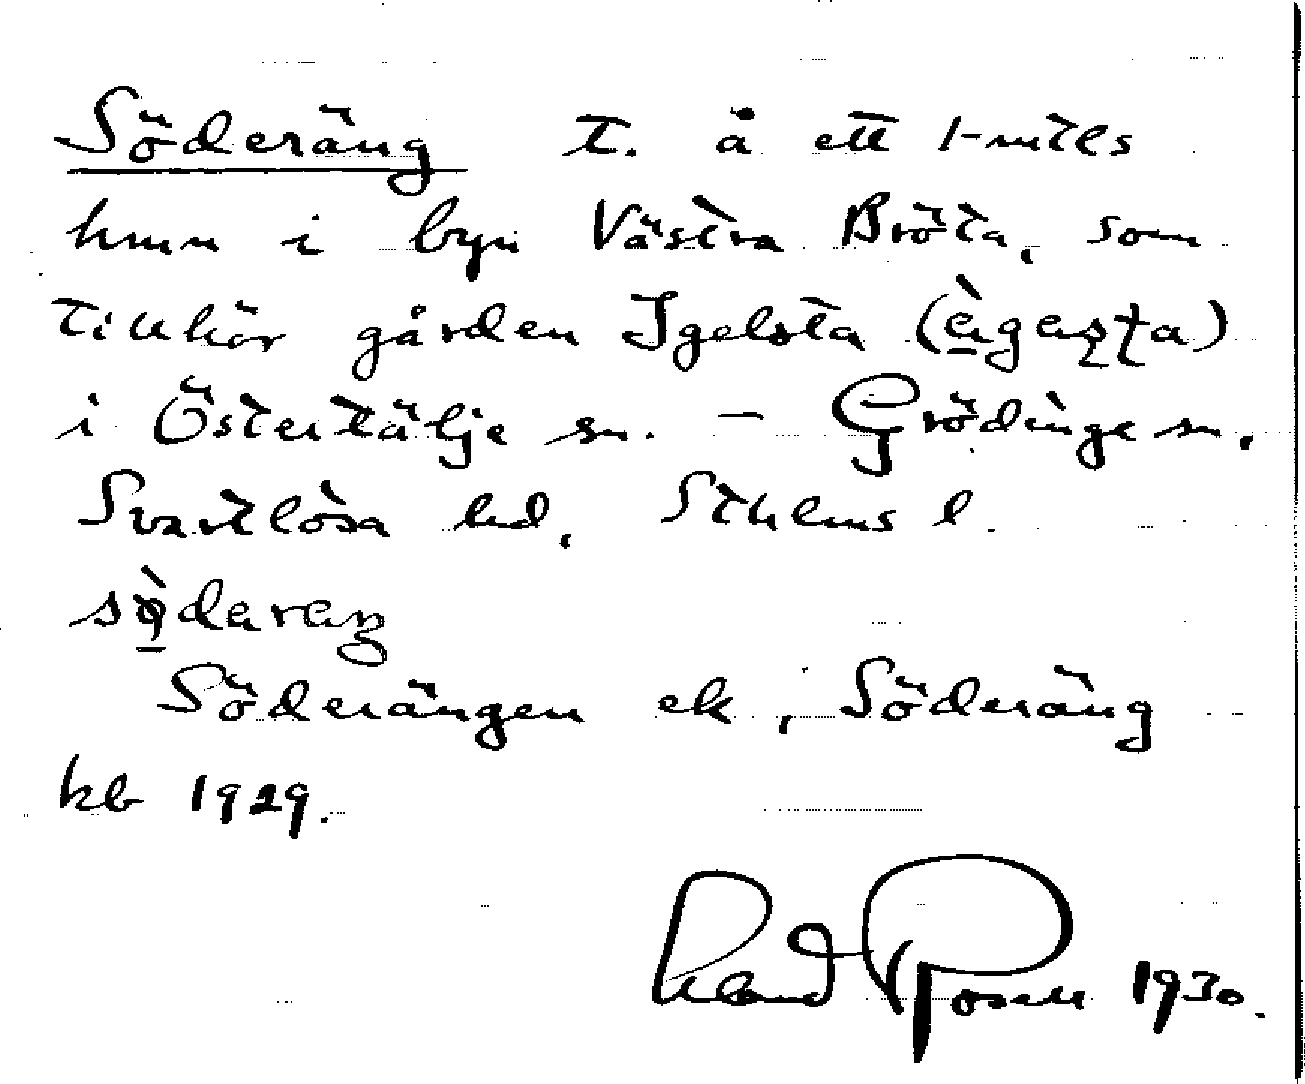 Söderäng t. å ett 1-mtls
hmn i byn Västra Bröta, som
tillhör gården Igelsta (ègəsta)
i Östertälje sn. – Grödinge sn.
Svartlösa hd, Sthlms l.
sø̀dəreŋ
Söderängen ek, Söderäng
kb 1929.
1930.